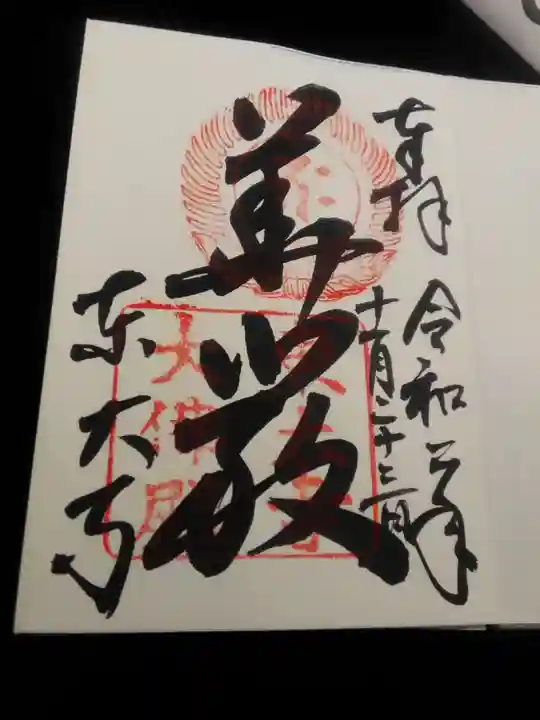 奉拝
令和二年
十一月二十二日
華嚴
東大寺
東大寺
大佛殿